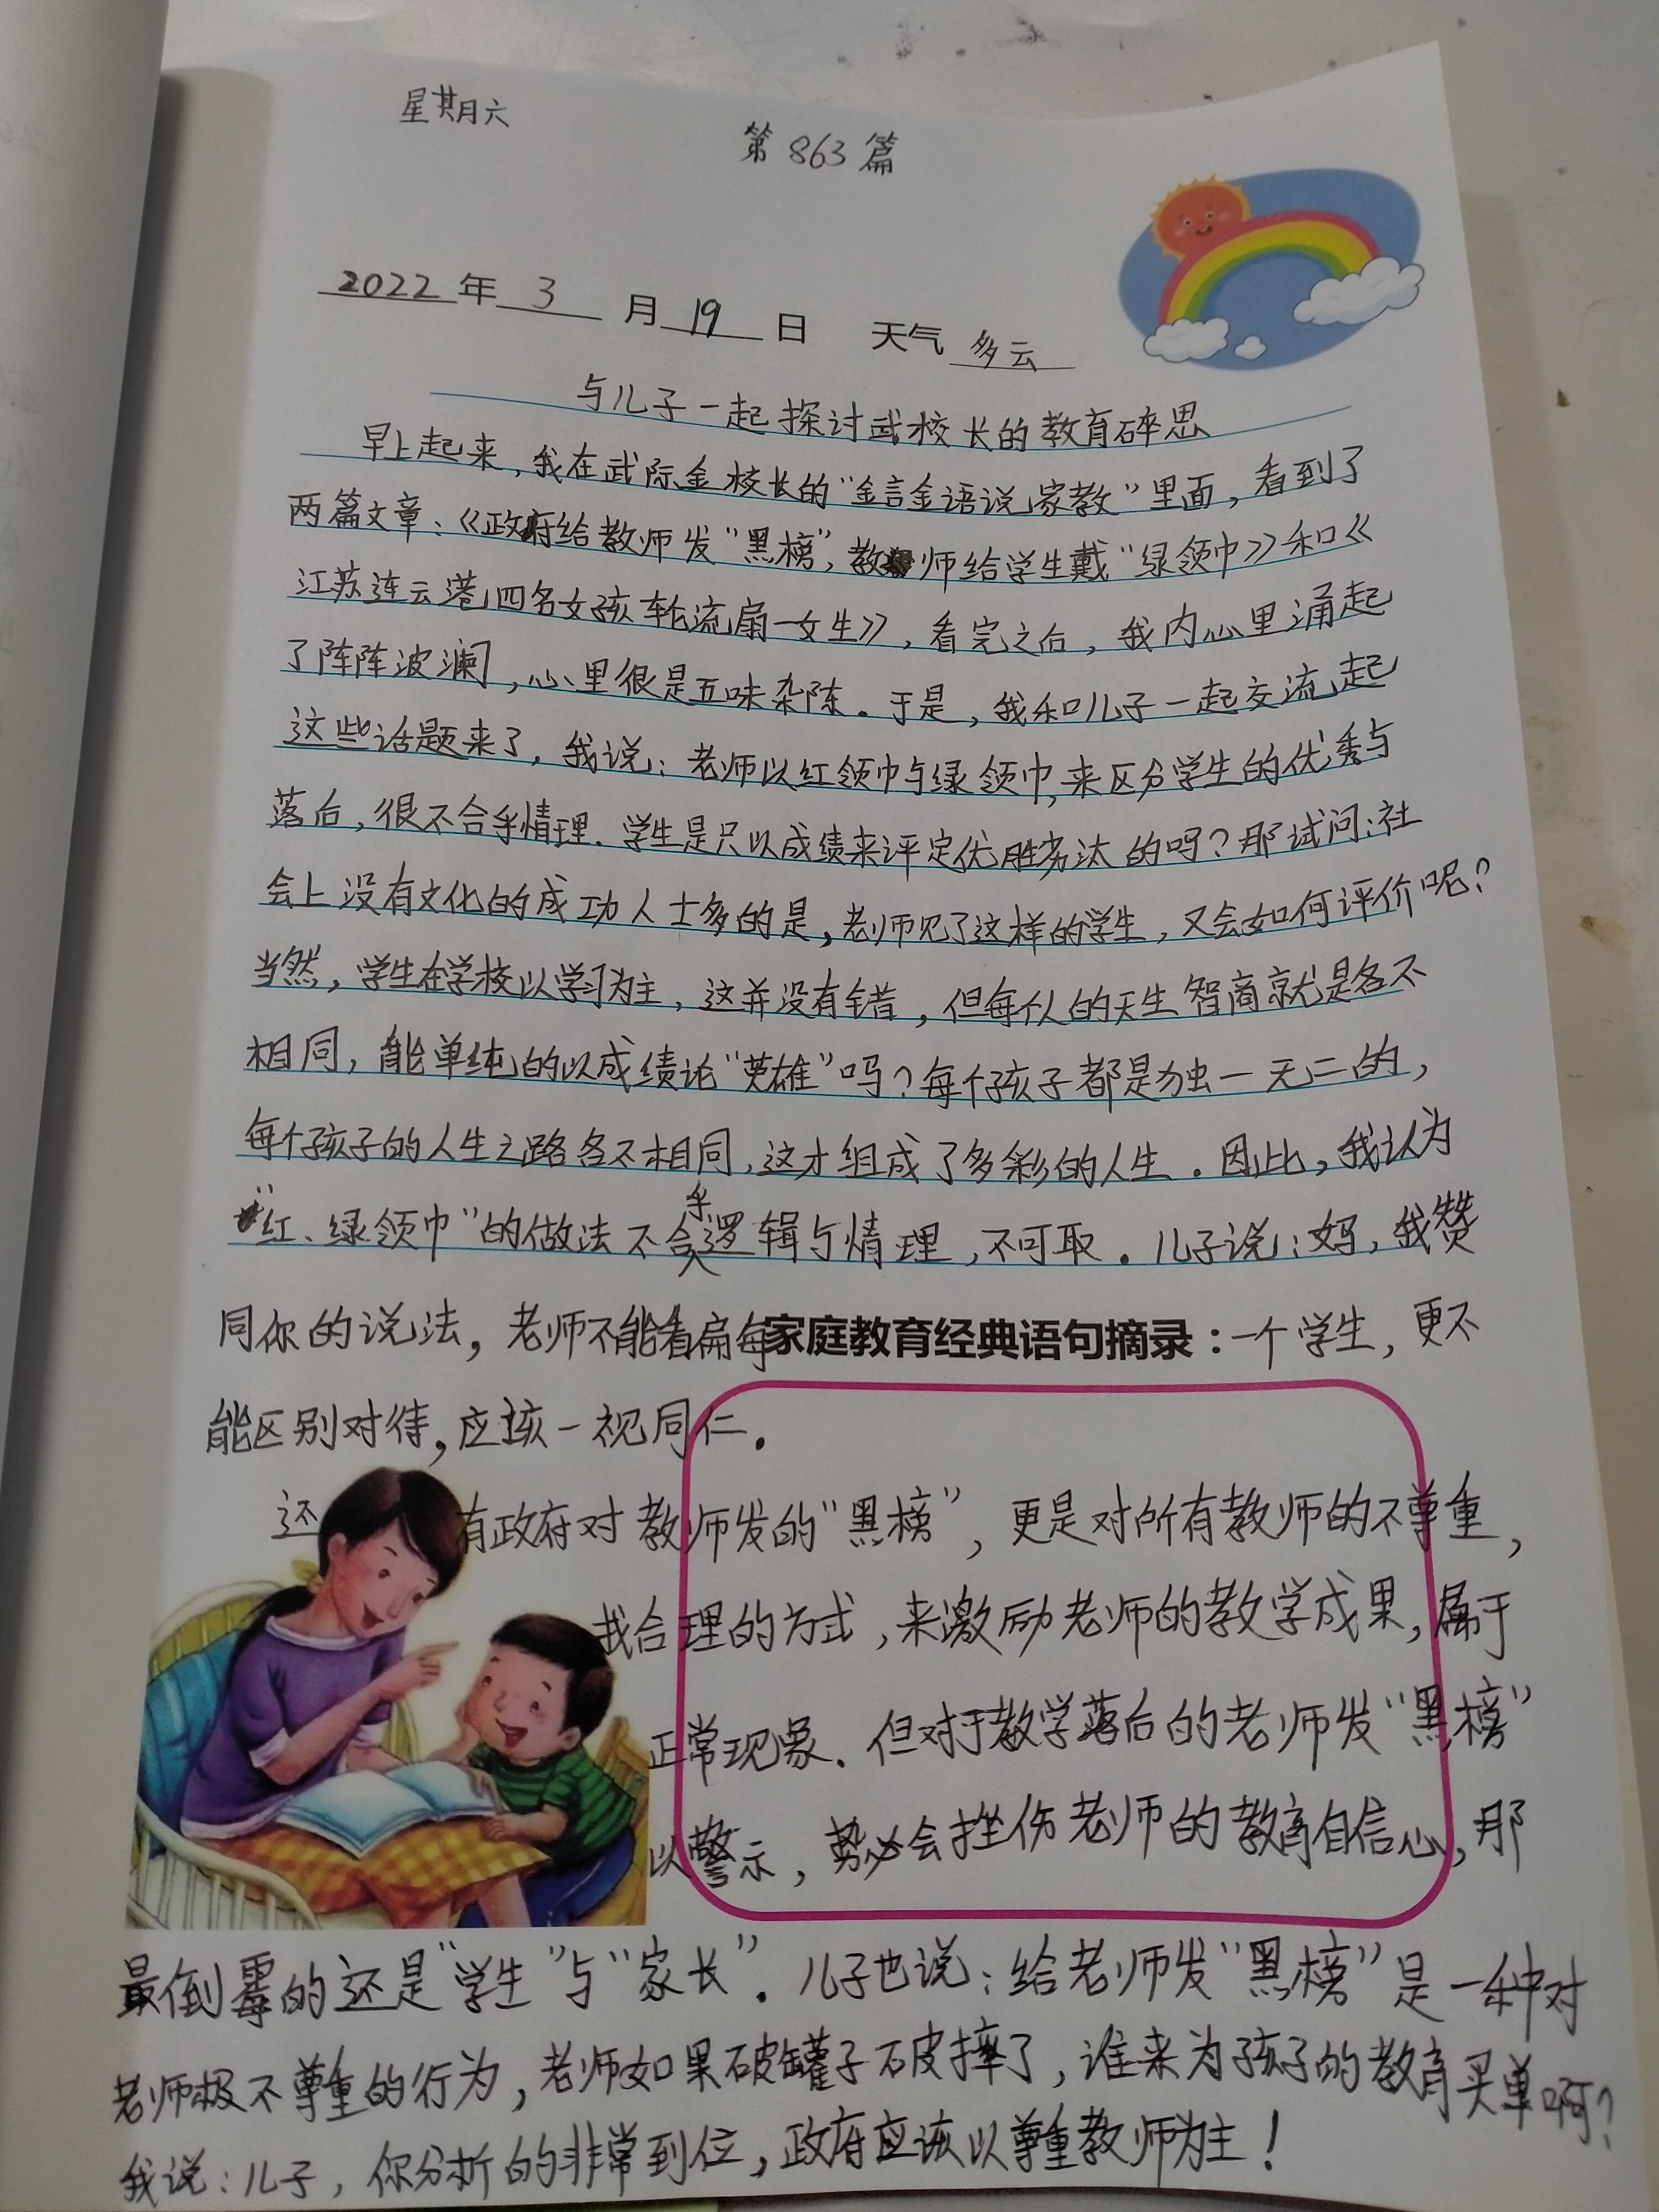 星期六
第863篇
2022年3月19日 天气多云
与儿子一起探讨武校长的教育碎思
早上起来，我在武际金校长的“金言金语说家教”里面，看到了
两篇文章：《政府给教师发“黑榜”，教师给学生戴“绿领巾》》和《
江苏连云港四名女孩轮流扇一女生》》，看完之后，我内心里涌起
了阵阵波澜，心里很是五味杂陈。于是，我和儿子一起交流起
这些话题来了，我说：老师以红领巾与绿领巾，来区分学生的优秀与
落后，很不合乎情理．学生是只以成绩来评定优胜劣汰的吗？那试问：社
会上没有文化的成功人士多的是，老师见了这样的学生，又会如何评价呢？
当然，学生在学校以学习为主，这并没有错，但每个人的天生智商就是各不
相同，能单纯的以成绩论“英雄”吗？每个孩子都是独一无二的，
每个孩子的人生之路各不相同，这才组成了多彩的人生．因此，我认为
“红、绿领巾”的做法不合乎逻辑与情理，不可取．儿子说：妈，我赞
同你的说法，老师不能看扁每家庭教育经典语句摘录：一个学生，更不
能区别对待，应该一视同仁．
还有政府对教师发的“黑榜”，更是对所有教师的不尊重，
找合理的方式，来激励老师的教学成果，属于
正常现象．但对于教学落后的老师发“黑榜”
以警示，势必会挫伤老师的教育自信心，那
最倒霉的还是“学生”与“家长”．儿子也说：给老师发“黑榜”是一种对
老师极不尊重的行为，老师如果破罐子破摔了，谁来为孩子的教育买单啊？
我说：儿子，你分析的非常到位，政府应该以尊重教师为主！